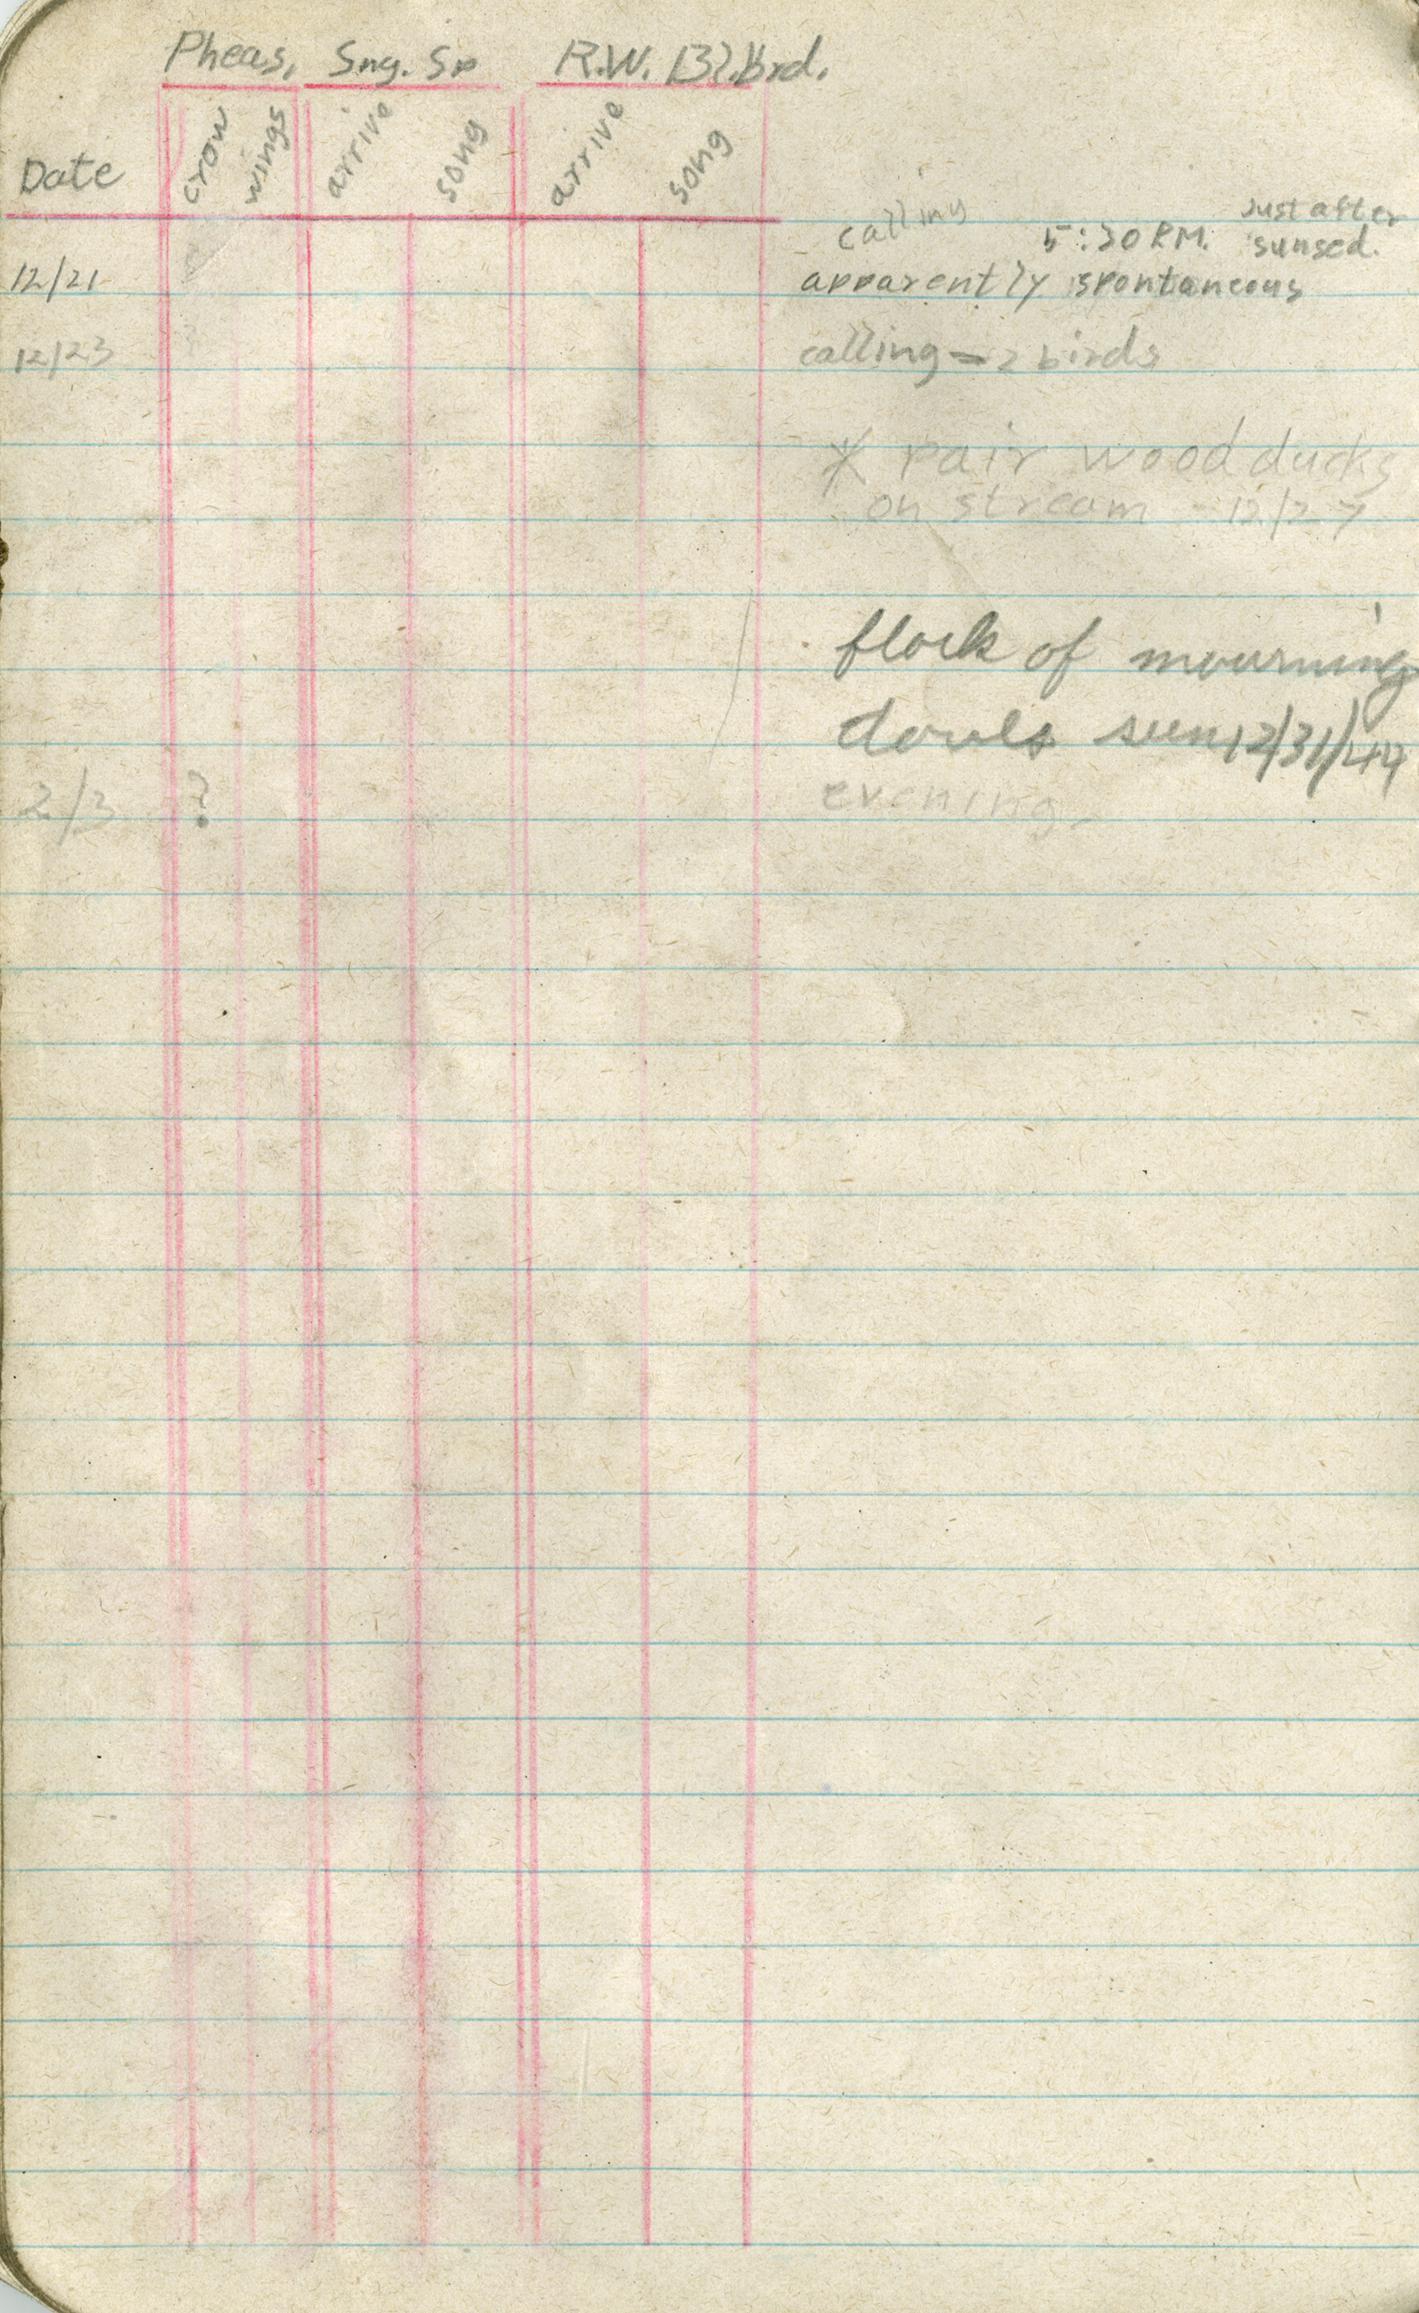 Pheas. Sng. Sp R.W. Bl.brd.
Date crow wings arrive song arrive song
calling 5:30 P.M. Just after
sunsed.
12/21 apparently spontaneous
12/23 calling = 2 birds
* pair wood ducks
on stream - 12/27
flock of mourning
doves seen 12/31/44
2/3 ? evening